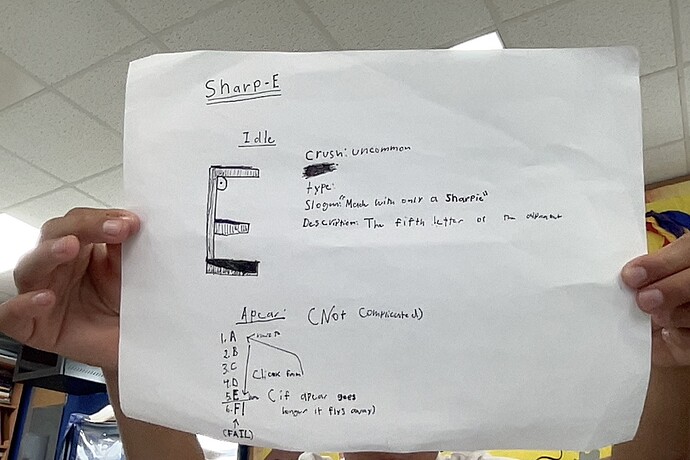 Sharp-E
Idle
Crush: uncommon
type:
Slogan: "Made with only a Sharpie"
Description: The fifth letter of the
Apear: (Not Complicated)
1. A
2. B
3. C
4. D
Click from
5. E (if apear goes
6. F longer it flys away)
(FAIL)